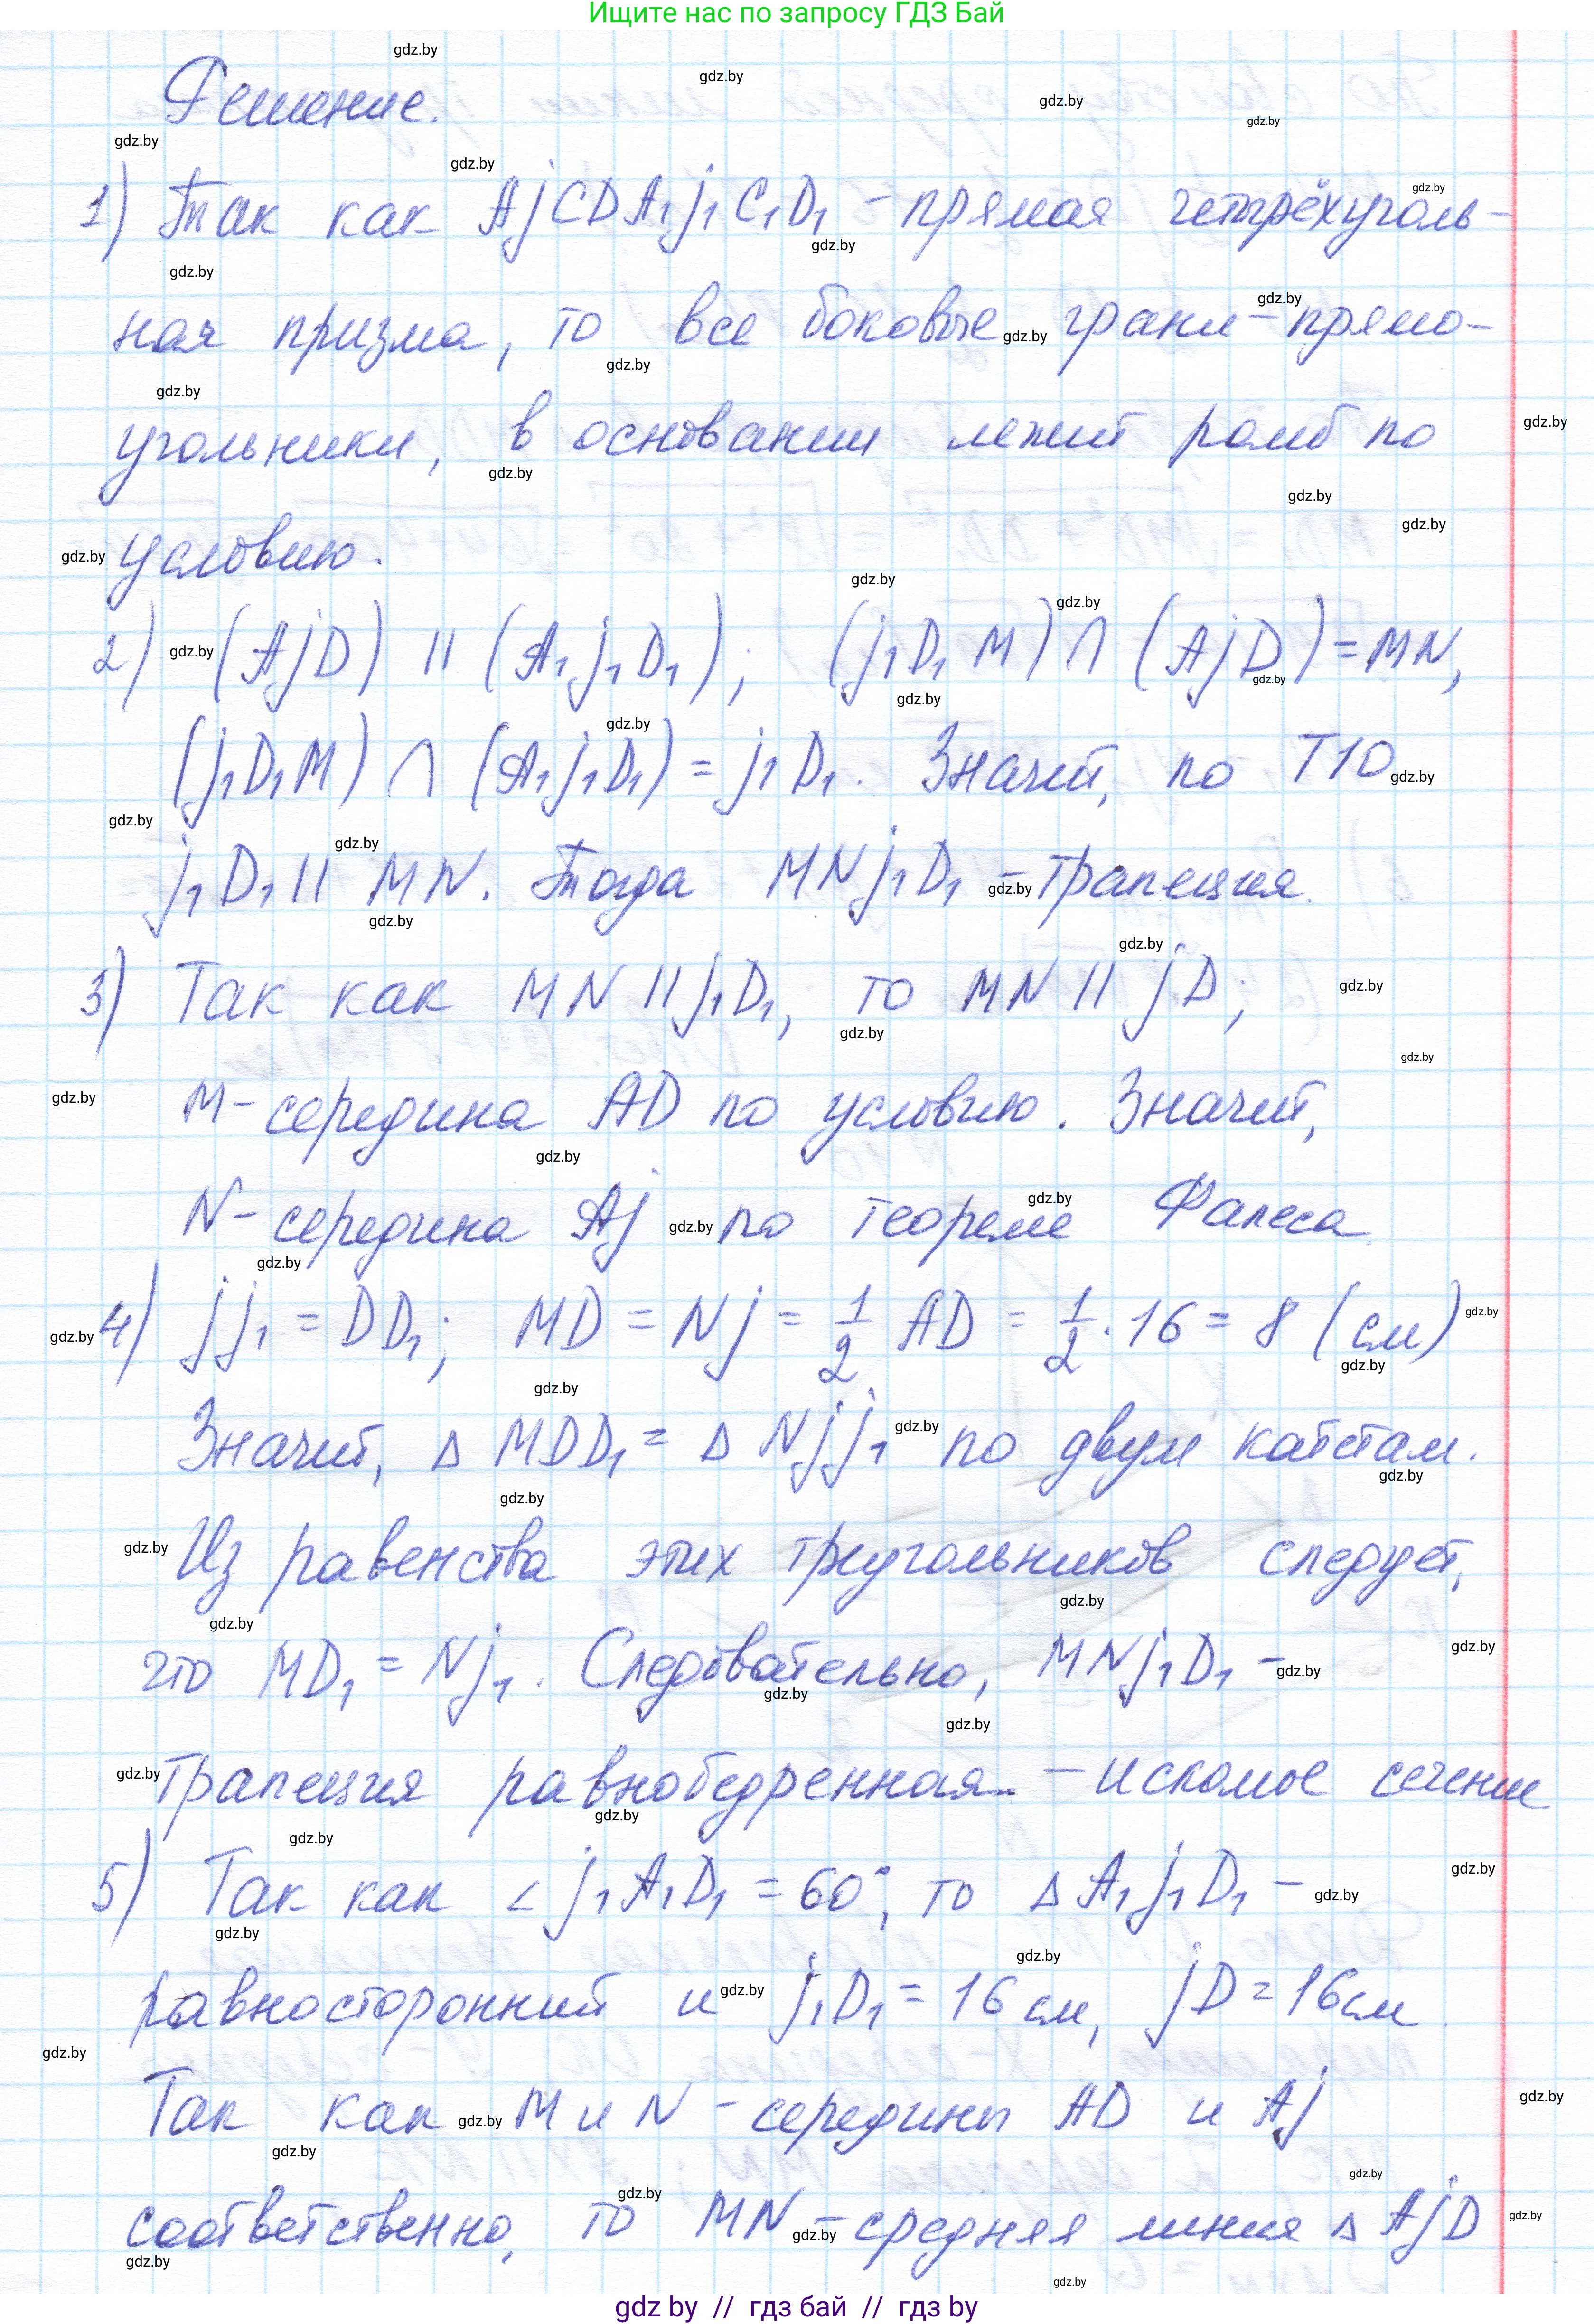 Ищите нас по запросу ГДЗ Бай
Решение.
1) Так как AjCDA₁j₁C₁D₁ - прямая четырёхуголь-
ная призма, то все боковые грани - прямо-
угольники, в основании лежит ромб по
условию.
2) (AjD) || (A₁j₁D₁); (j₁D₁M) ∩ (AjD) = MN,
(j₁D₁M) ∩ (A₁j₁D₁) = j₁D₁. Значит, по Т10
j₁D₁ || MN. Тогда MNj₁D₁ - трапеция.
3) Так как MN || j₁D₁, то MN || jD;
M - середина AD по условию. Значит,
N - середина Aj по теореме Фалеса.
4) jj₁ = DD₁; MD = Nj = 1/2 AD = 1/2 · 16 = 8 (см)
Значит, Δ MDD₁ = Δ Njj₁ по двум катетам.
Из равенства этих треугольников следует,
что MD₁ = Nj₁. Следовательно, MNj₁D₁ -
трапеция равнобедренная - искомое сечение
5) Так как ∠ j₁A₁D₁ = 60°, то Δ A₁j₁D₁ -
равносторонний и j₁D₁ = 16 см, jD = 16 см.
Так как M и N - середины AD и Aj
соответственно, то MN - средняя линия Δ AjD
gdz by // гдз бай // гдз by